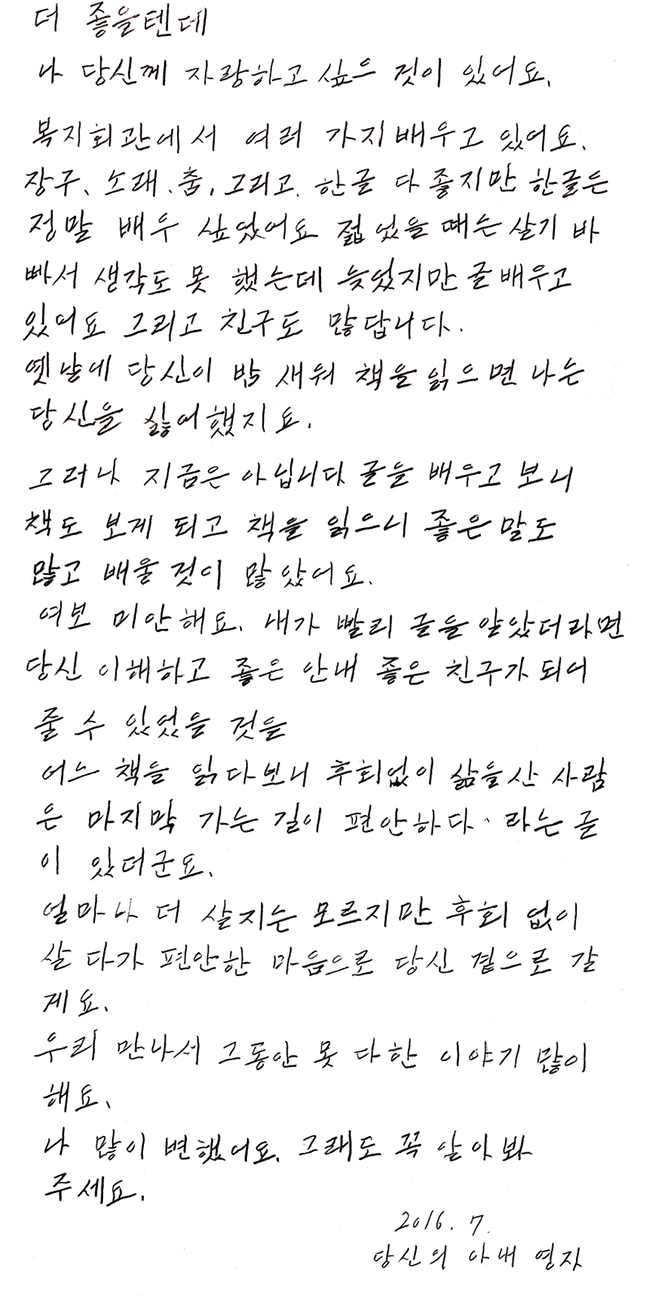 더 좋을텐데
나 당신께 자랑하고 싶으 것이 있어요.
복지회관에서 여러 가지배우고 있어요.
장구. 소래. 춤, 그리고. 한글 다 좋지만 한글은
정말 배우 싶었어요 젊었을 때는 살기 바
빠서 생각도 못 했는데 늦었지만 글배우고
있어요 그리고 친구도 많답니다.
옛날에 당신이 밤 새워 책을 읽으면 나는
당신을 싫어했지요.
그러나 지금은 아닙니다 글을 배우고 보니
책도 보게 되고 책을 읽으니 좋은 말도
많고 배울 것이 많았어요.
여보 미안해요. 내가 빨리 글을 알았더라면
당신 이해하고 좋은 안내 좋은 친구가 되어
줄 수 있었을 것을
어느 책을 읽다보니 후회없이 삶을산 사람
은 마지막 가는 길이 편안하다. 라는 글
이 있더군요.
얼마나 더 살지는 모르지만 후회 없이
살 다가 편안한 마음으로 당신 곁으로 갈
게요.
우리 만나서 그동안 못 다한 이야기 많이
해요.
나 많이 변했어요. 그래도 꼭 알아봐
주세요.
2016. 7.
당신의 아내 연자